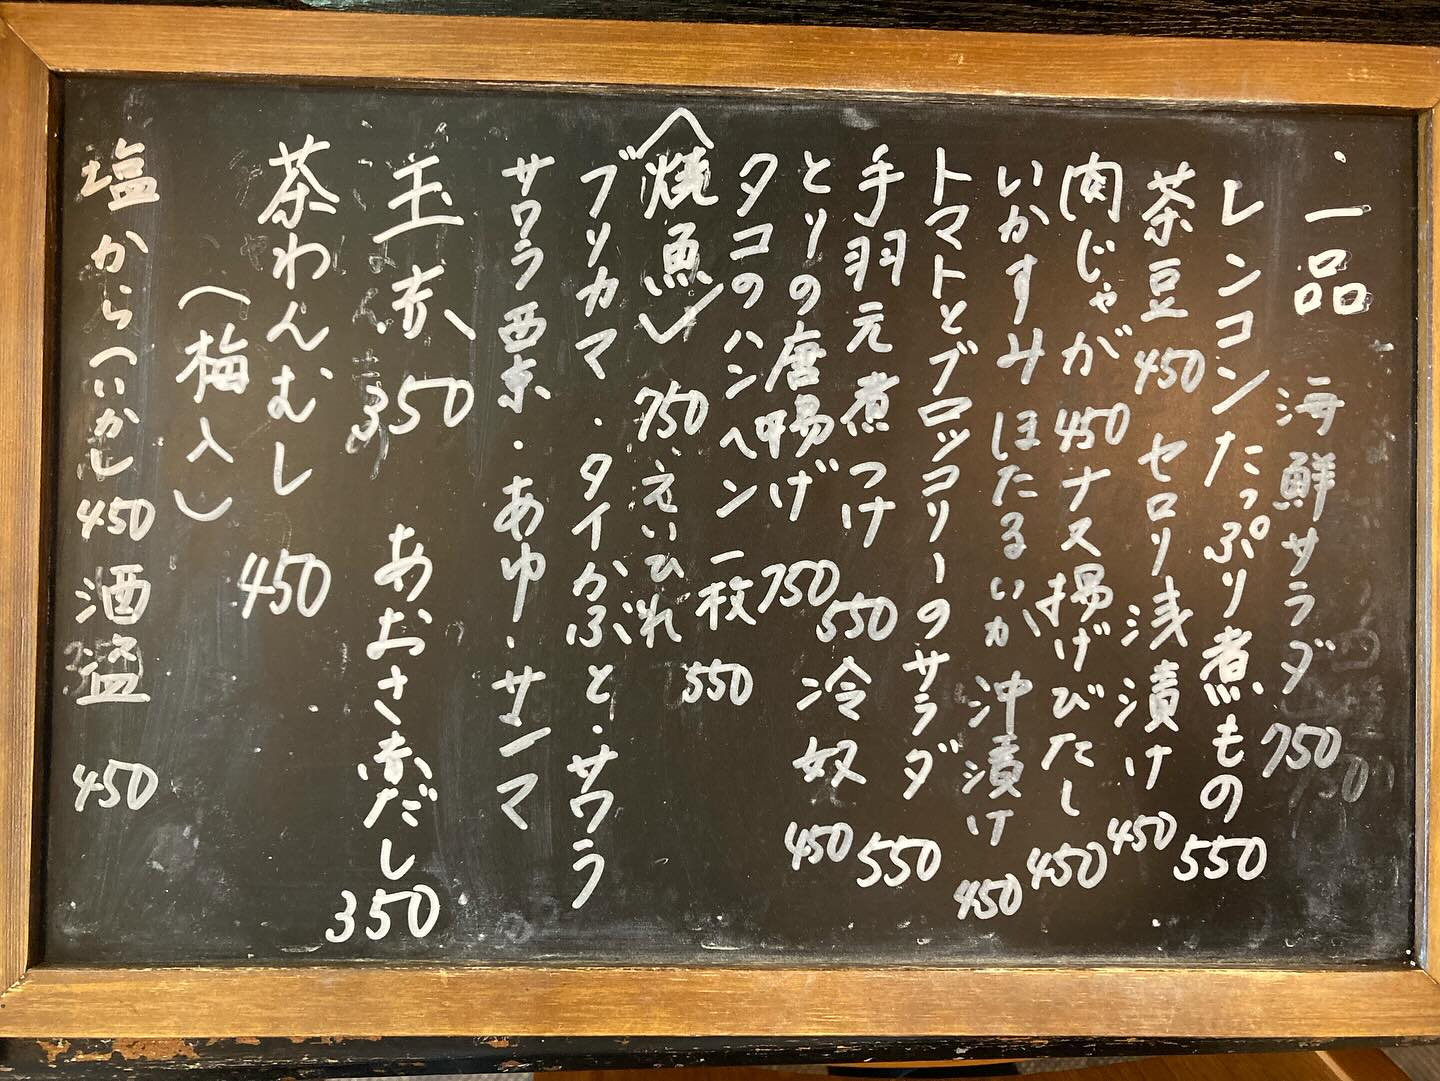 一品 海鮮サラダ 750
レンコンたっぷり煮もの 550
茶豆 450 セロリ浅漬け 450
肉じゃが 450 ナス揚げびたし 450
いかすみほたるいか沖漬け 450
トマトとブロッコリーのサラダ 550
手羽元煮つけ 550 冷奴 450
とりの唐揚げ 750
タコのハンペン一枚 550
〈焼魚〉 750・えいひれ
ブリカマ・タイかぶと・サワラ
サワラ西京・あゆ・サンマ
玉吸 350 あおさ赤だし 350
茶わんむし 450
(梅入)
塩から(いかし 450 酒盗 450